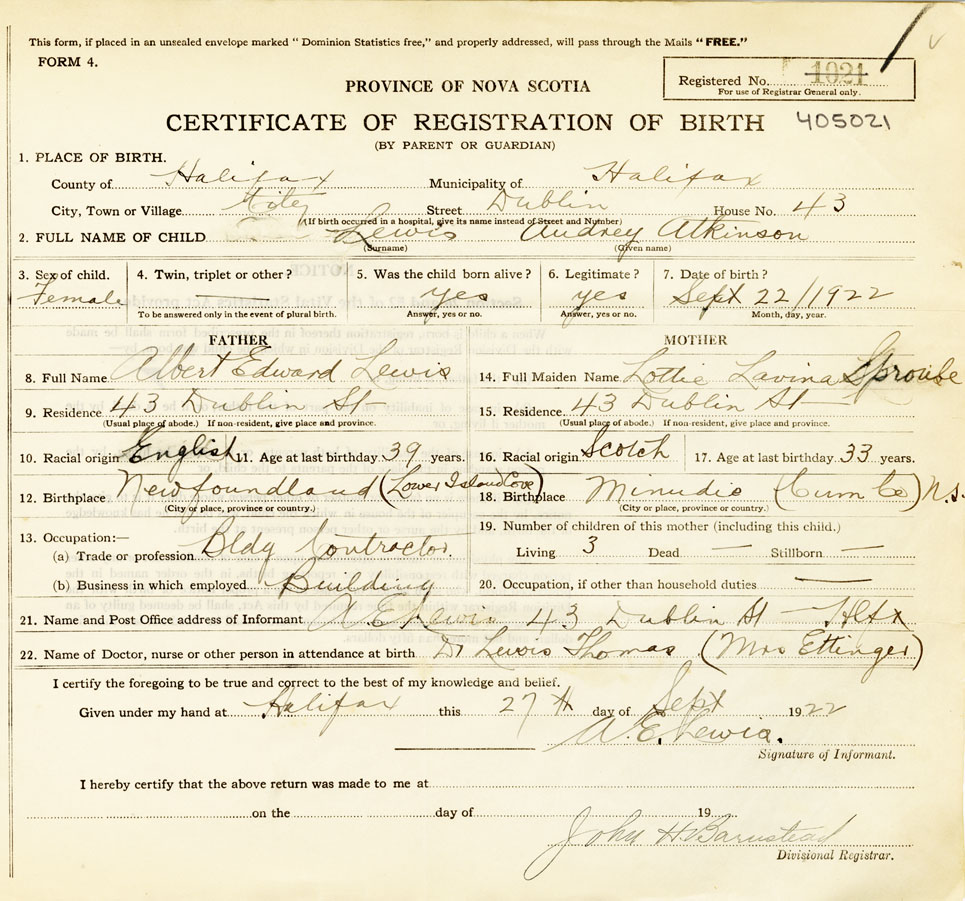 This form, if placed in an unsealed envelope marked " Dominion Statistics free," and properly addressed, will pass through the Mails " FREE."
FORM 4.
Registered No. 1021
For use of Registrar General only.
PROVINCE OF NOVA SCOTIA
CERTIFICATE OF REGISTRATION OF BIRTH 405021
(BY PARENT OR GUARDIAN)
1. PLACE OF BIRTH.
County of Halifax Municipality of Halifax
City, Town or Village City Street Dublin House No. 43
(If birth occurred in a hospital, give its name instead of Street and Number)
2. FULL NAME OF CHILD Lewis Audrey Atkinson
(Surname) (Given name)
3. Sex of child. 4. Twin, triplet or other? 5. Was the child born alive? 6. Legitimate? 7. Date of birth?
Female — yes yes Sept 22/1922
To be answered only in the event of plural birth. Answer, yes or no. Answer, yes or no. Month, day, year.
FATHER MOTHER
8. Full Name Albert Edward Lewis 14. Full Maiden Name Lottie Lavina
9. Residence 43 Dublin St 15. Residence 43 Dublin St
(Usual place of abode.) If non-resident, give place and province. (Usual place of abode.) If non-resident, give place and province.
10. Racial origin English 11. Age at last birthday 39 years. 16. Racial origin Scotch 17. Age at last birthday 33 years.
12. Birthplace Newfoundland (Lower Island Cove) 18. Birthplace Minudie (Cumb Co) N.S.
(City or place, province or country.) (City or place, province or country.)
13. Occupation:— 19. Number of children of this mother (including this child.)
(a) Trade or profession Bldg Contractor. Living 3 Dead — Stillborn —
(b) Business in which employed Building 20. Occupation, if other than household duties —
21. Name and Post Office address of Informant A E Lewis 43 Dublin St Hlfx
22. Name of Doctor, nurse or other person in attendance at birth Dr Lewis Thomas (Mrs Ettinger)
I certify the foregoing to be true and correct to the best of my knowledge and belief.
Given under my hand at Halifax this 27th day of Sept 1922
A. E. Lewis.
Signature of Informant.
I hereby certify that the above return was made to me at
on the day of 19
John H Barnstead
Divisional Registrar.